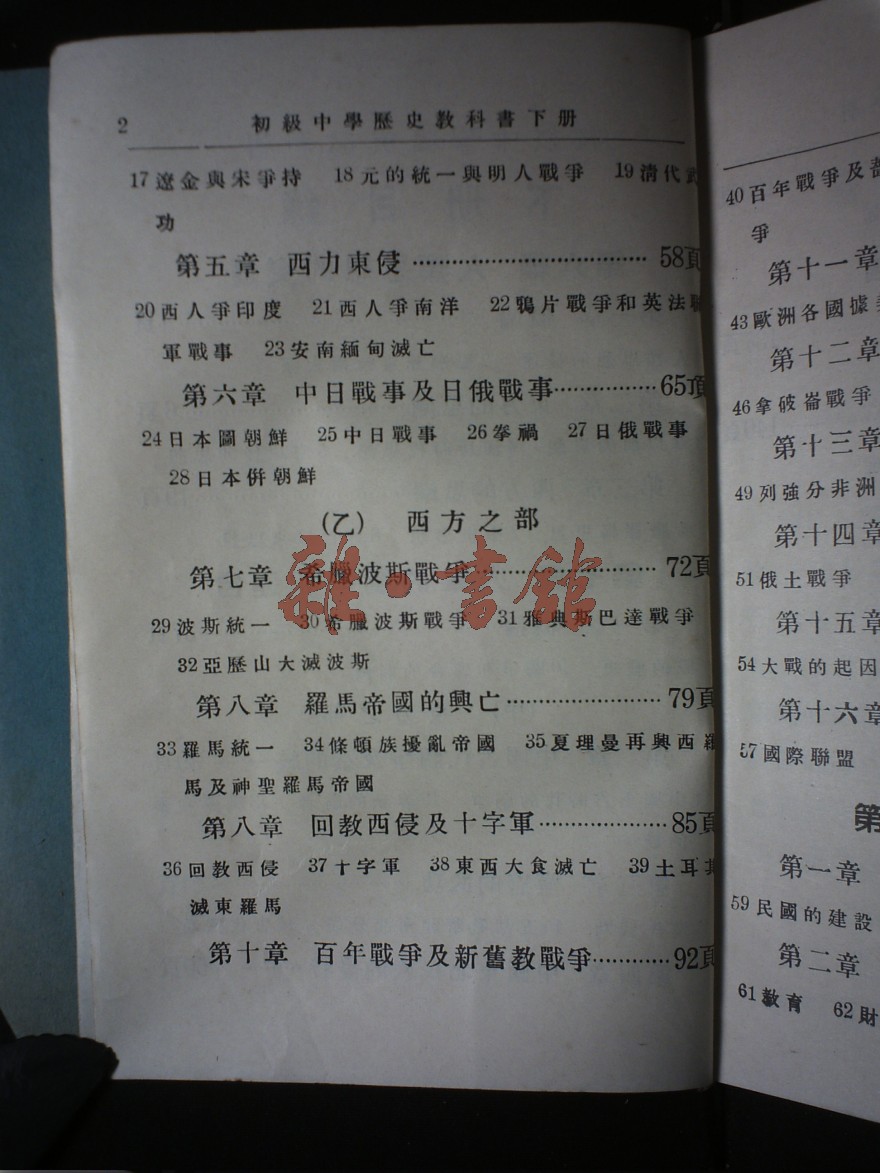 2 初級中學歷史教科書下册
17遼金與宋爭持 18元的統一與明人戰爭 19清代武
功
第五章 西力東侵 58頁
20西人爭印度 21西人爭南洋 22鴉片戰爭和英法聯
軍戰事 23安南緬甸滅亡
第六章 中日戰事及日俄戰事 65頁
24日本圖朝鮮 25中日戰事 26拳禍 27日俄戰事
28日本併朝鮮
(乙) 西方之部
第七章 希臘波斯戰爭 72頁
29波斯統一 30希臘波斯戰爭 31雅典斯巴達戰爭
32亞歷山大滅波斯
第八章 羅馬帝國的興亡 79頁
33羅馬統一 34條頓族擾亂帝國 35夏理曼再興西羅
馬及神聖羅馬帝國
第八章 回教西侵及十字軍 85頁
36回教西侵 37十字軍 38東西大食滅亡 39土耳其
滅東羅馬
第十章 百年戰爭及新舊教戰爭 92頁
雜·書館
40百年戰爭及
爭
第十一章
43歐洲各國據
第十二章
46拿破崙戰爭
第十三章
49列強分非洲
第十四章
51俄土戰爭
第十五章
54大戰的起因
第十六章
57國際聯盟
第
第一章
59民國的建設
第二章
61教育 62財